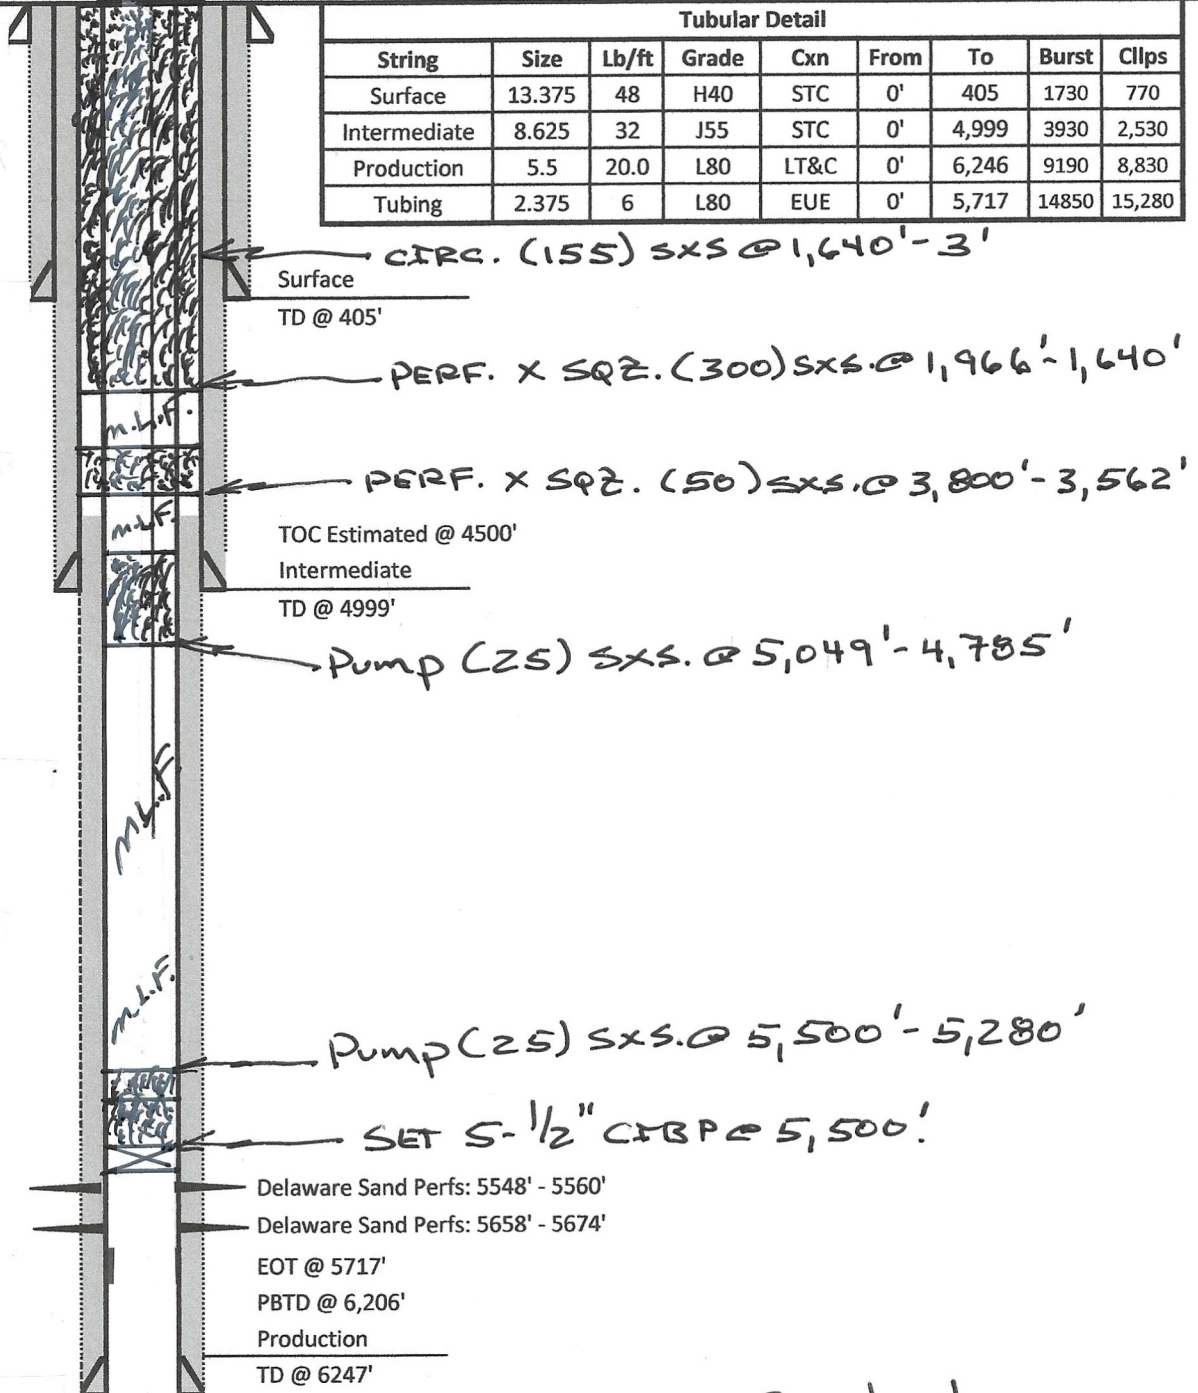 Tubular Detail
String Size Lb/ft Grade Cxn From To Burst Cllps
Surface 13.375 48 H40 STC 0' 405 1730 770
Intermediate 8.625 32 J55 STC 0' 4,999 3930 2,530
Production 5.5 20.0 L80 LT&C 0' 6,246 9190 8,830
Tubing 2.375 6 L80 EUE 0' 5,717 14850 15,280
CIRC. (155) SXS @ 1,640'-3'
Surface
TD @ 405'
PERF. X SQZ. (300) SXS. @ 1,966'-1,640'
M.L.F.
PERF. X SQZ. (50) SXS. @ 3,800'-3,562'
M.L.F.
TOC Estimated @ 4500'
Intermediate
TD @ 4999'
Pump (25) SXS. @ 5,049'-4,785'
M.L.F.
M.L.F.
Pump (25) SXS. @ 5,500'-5,280'
SET 5-1/2" CIBP @ 5,500'.
Delaware Sand Perfs: 5548' - 5560'
Delaware Sand Perfs: 5658' - 5674'
EOT @ 5717'
PBTD @ 6,206'
Production
TD @ 6247'